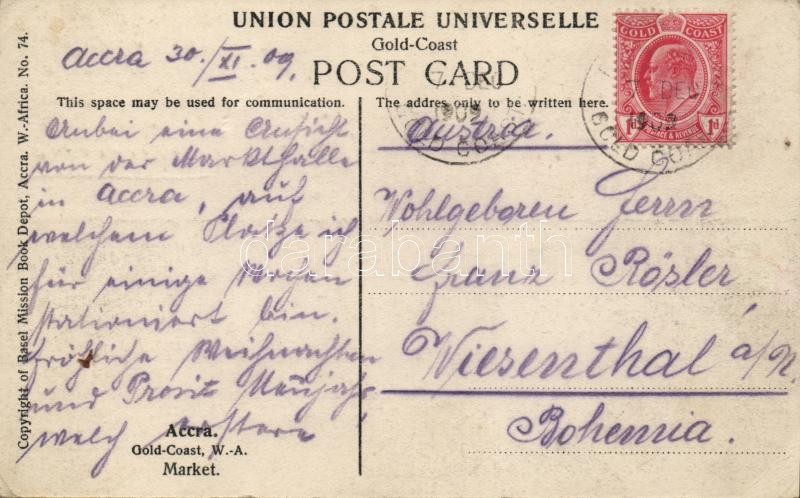 UNION POSTALE UNIVERSELLE
Gold-Coast
POST CARD
This space may be used for communication.
The addres only to be written here.
Accra 30./XI.09.
Anbei eine Ansicht
von der Markthalle
in Accra, auf
welchem Platze ich
für einige Wochen
stationiert bin.
Fröhliche Weihnachten
und Prosit Neujahr
welch
Accra.
Gold-Coast, W.-A.
Market.
Copyright of Basel Mission Book Depot, Accra. W.-Africa. No. 74.
Austria.
Wohlgeboren Herrn
Franz Rösler
Wiesenthal a/N.
Bohemia.
GOLD COAST
1d POSTAGE & REVENUE 1d
7 DE
1909
GOLD COAST
7 DE
1909
GOLD CO
darabanth